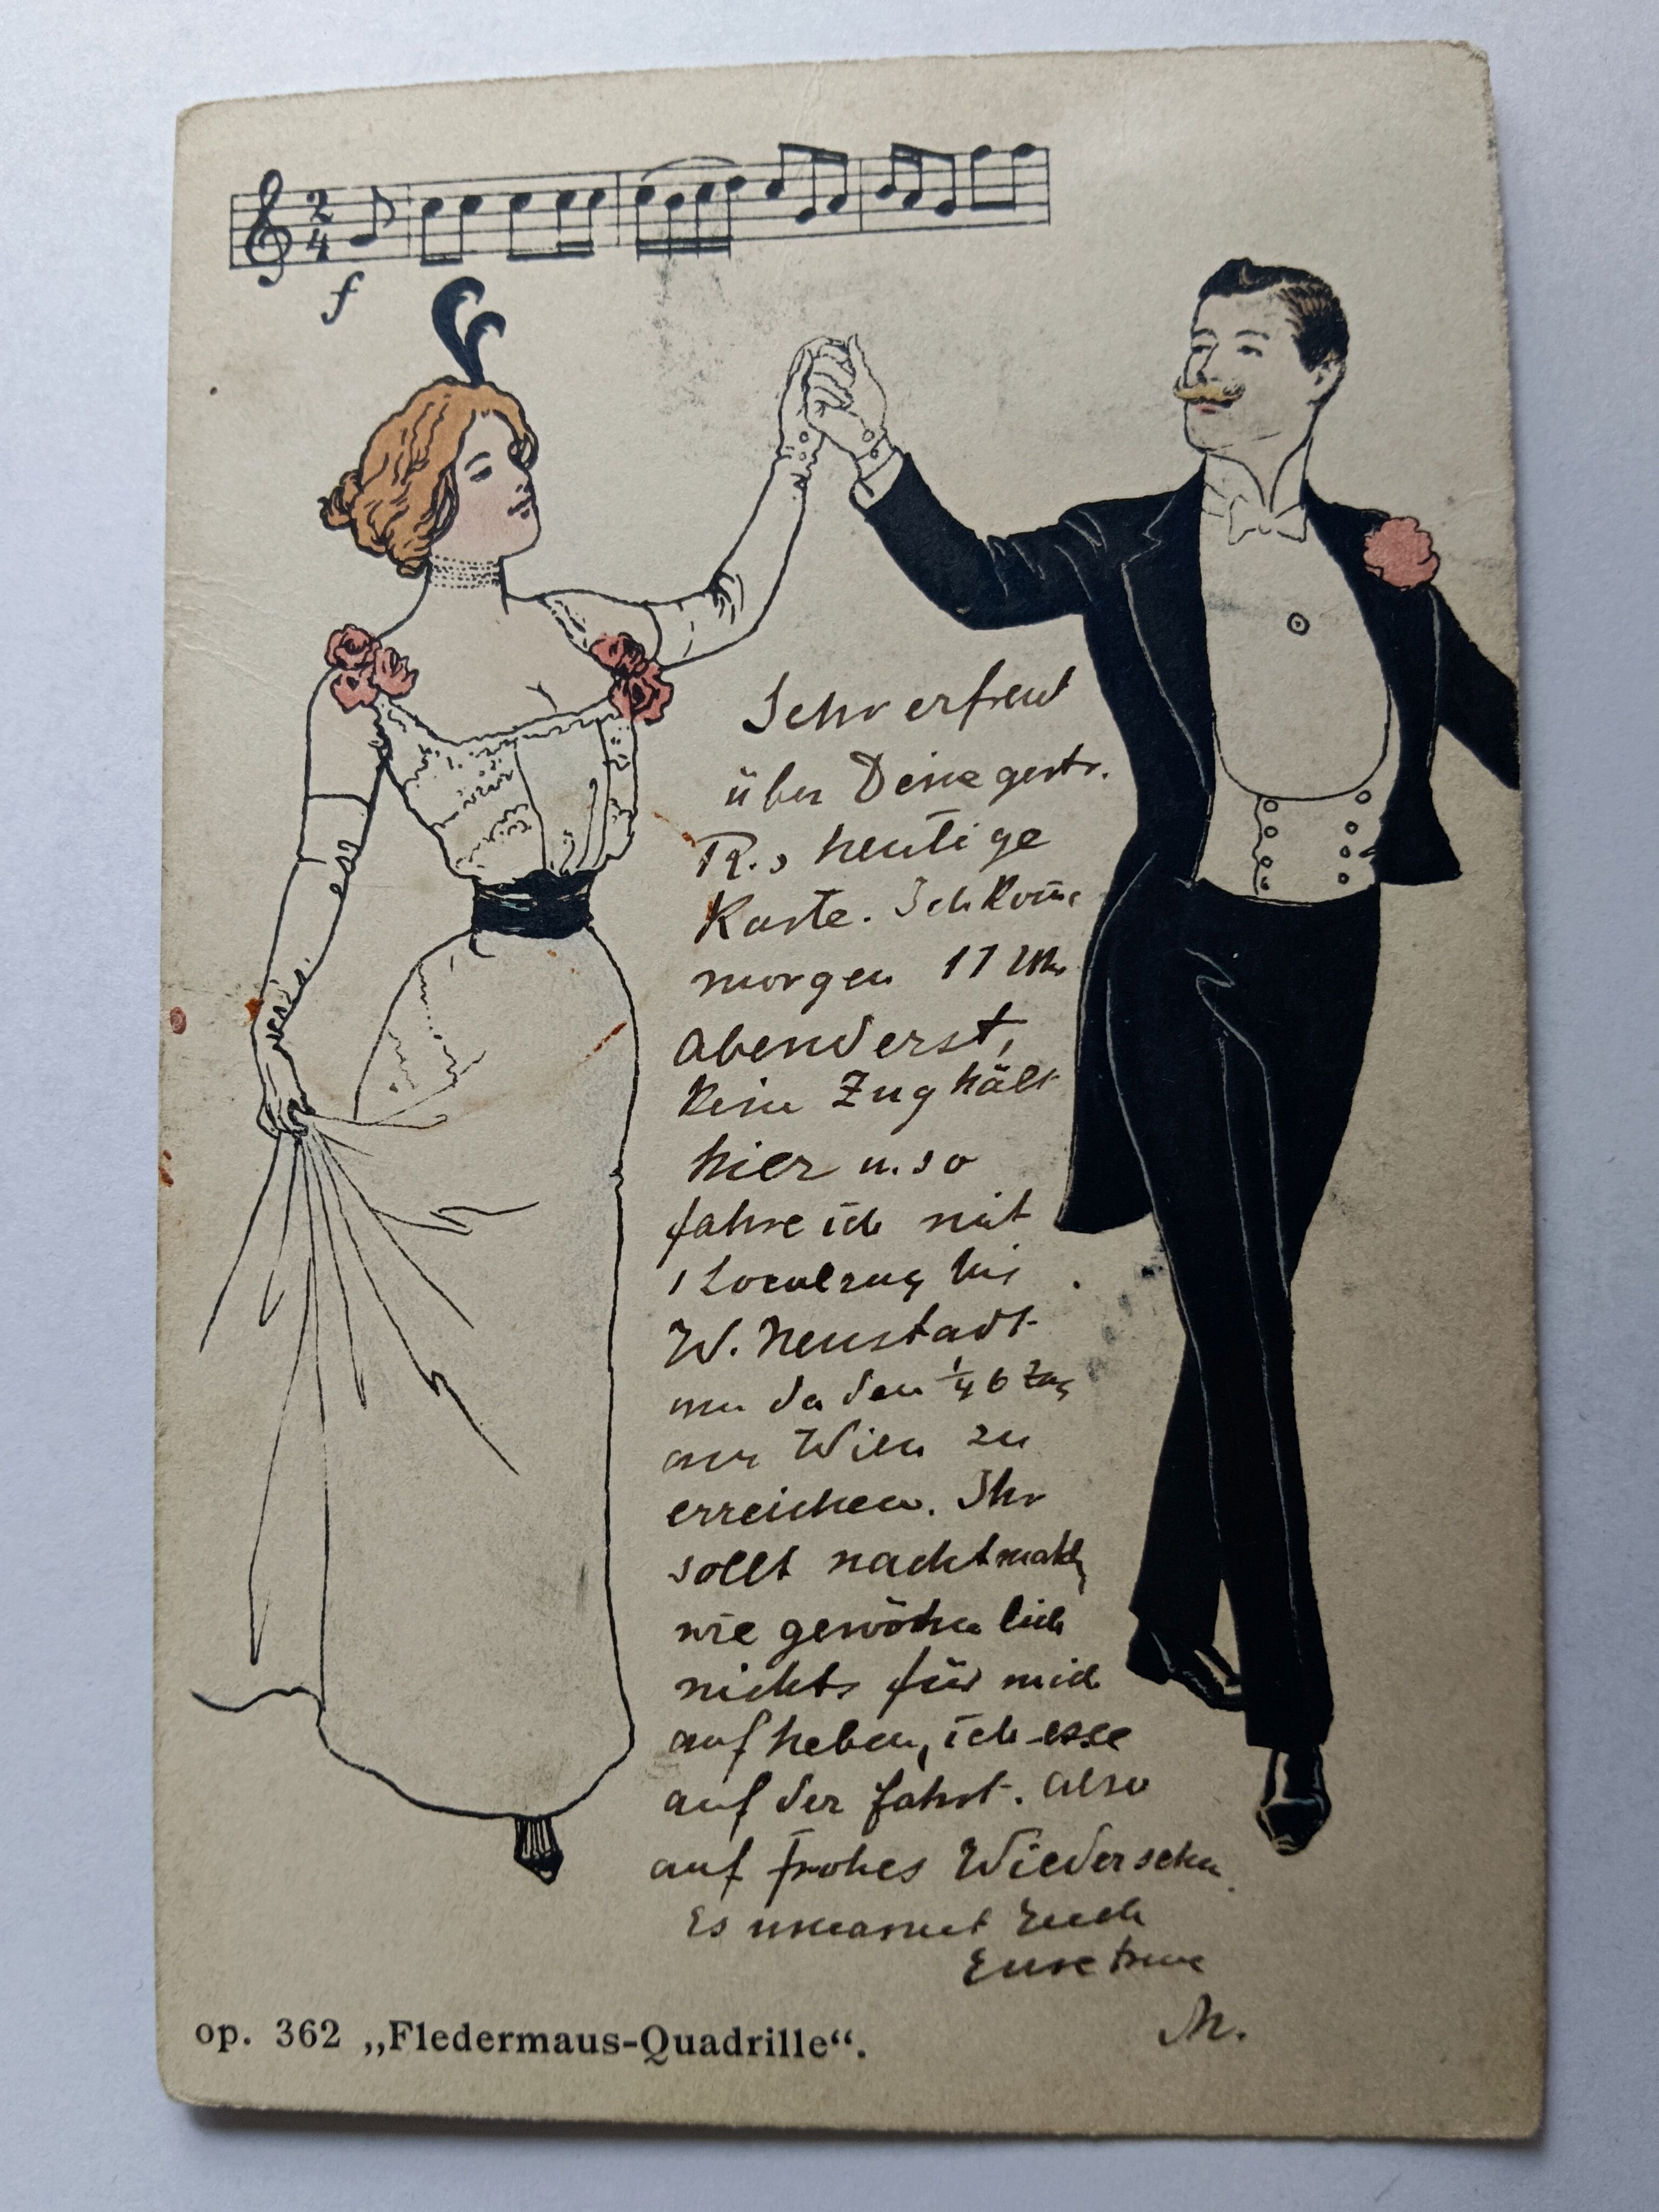 f
Sehr erfreut
über Deine gestr.
R., heutige
Karte. Ich kom̄e
morgen 11 Uhr
abend erst,
kein Zug hält
hier u. so
fahre ich mit
1 Localzug bis
W. Neustadt
um da den 1/4 6 Zug
aus Wien zu
erreichen. Ihr
sollt nachtmahl
wie gewöhnlich
nichts für mich
aufheben, ich esse
auf der Fahrt. Also
auf frohes Wiedersehn
Es umarmt Euch
Eure treue
M.
op. 362 „Fledermaus-Quadrille“.